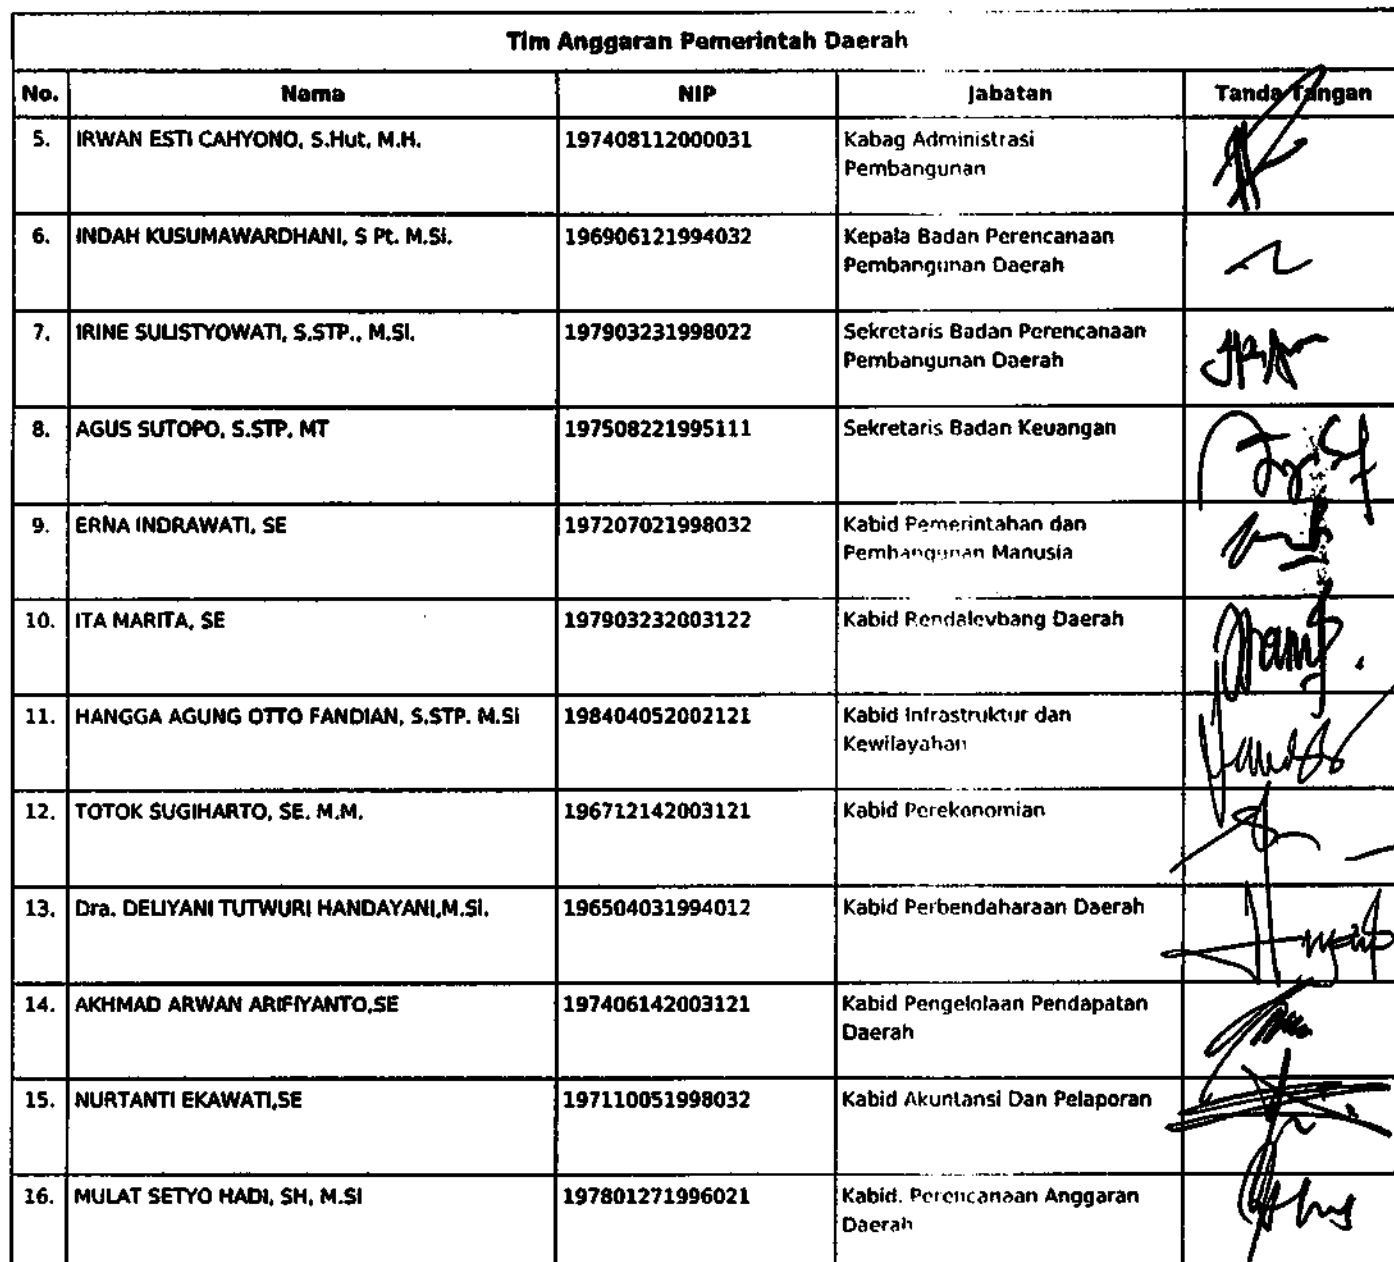 Tim Anggaran Pemerintah Daerah
No. Nama NIP Jabatan Tanda Tangan
5. IRWAN ESTI CAHYONO, S.Hut, M.H. 197408112000031 Kabag Administrasi
Pembangunan
6. INDAH KUSUMAWARDHANI, S Pt. M.Si. 196906121994032 Kepala Badan Perencanaan
Pembangunan Daerah
7. IRINE SULISTYOWATI, S.STP., M.Si. 197903231998022 Sekretaris Badan Perencanaan
Pembangunan Daerah
8. AGUS SUTOPO, S.STP, MT 197508221995111 Sekretaris Badan Keuangan
9. ERNA INDRAWATI, SE 197207021998032 Kabid Pemerintahan dan
Pembangunan Manusia
10. ITA MARITA, SE 197903232003122 Kabid Rendalevbang Daerah
11. HANGGA AGUNG OTTO FANDIAN, S.STP. M.Si 198404052002121 Kabid Infrastruktur dan
Kewilayahan
12. TOTOK SUGIHARTO, SE. M.M. 196712142003121 Kabid Perekonomian
13. Dra. DELIYANI TUTWURI HANDAYANI,M.Si. 196504031994012 Kabid Perbendaharaan Daerah
14. AKHMAD ARWAN ARIFIYANTO,SE 197406142003121 Kabid Pengelolaan Pendapatan
Daerah
15. NURTANTI EKAWATI,SE 197110051998032 Kabid Akuntansi Dan Pelaporan
16. MULAT SETYO HADI, SH, M.SI 197801271996021 Kabid. Perencanaan Anggaran
Daerah